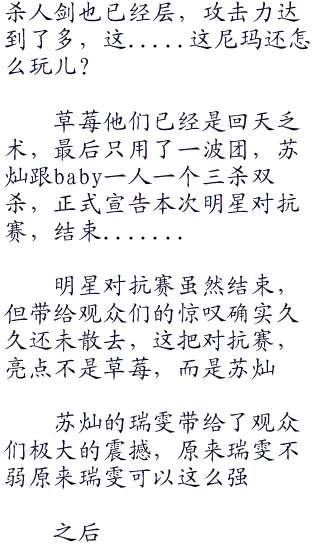 杀人剑也已经层，攻击力达
到了多，这.....这尼玛还怎
么玩儿？
草莓他们已经是回天乏
术，最后只用了一波团，苏
灿跟baby一人一个三杀双
杀，正式宣告本次明星对抗
赛，结束.......
明星对抗赛虽然结束，
但带给观众们的惊叹确实久
久还未散去，这把对抗赛，
亮点不是草莓，而是苏灿
苏灿的瑞雯带给了观众
们极大的震撼，原来瑞雯不
弱原来瑞雯可以这么强
之后